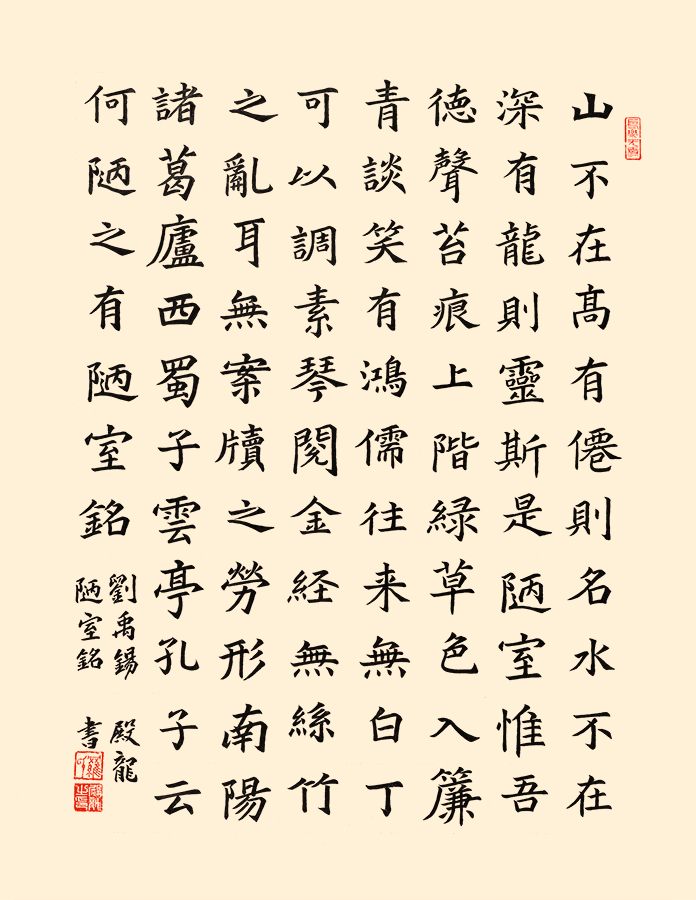 山不在髙有僊則名水不在
深有龍則靈斯是陋室惟吾
徳聲苔痕上階緑草色入簾
青談笑有鴻儒往来無白丁
可以調素琴閱金経無絲竹
之亂耳無案牘之勞形南陽
諸葛廬西蜀子雲亭孔子云
何陋之有陋室銘
劉禹錫
陋室銘
殿龍
書